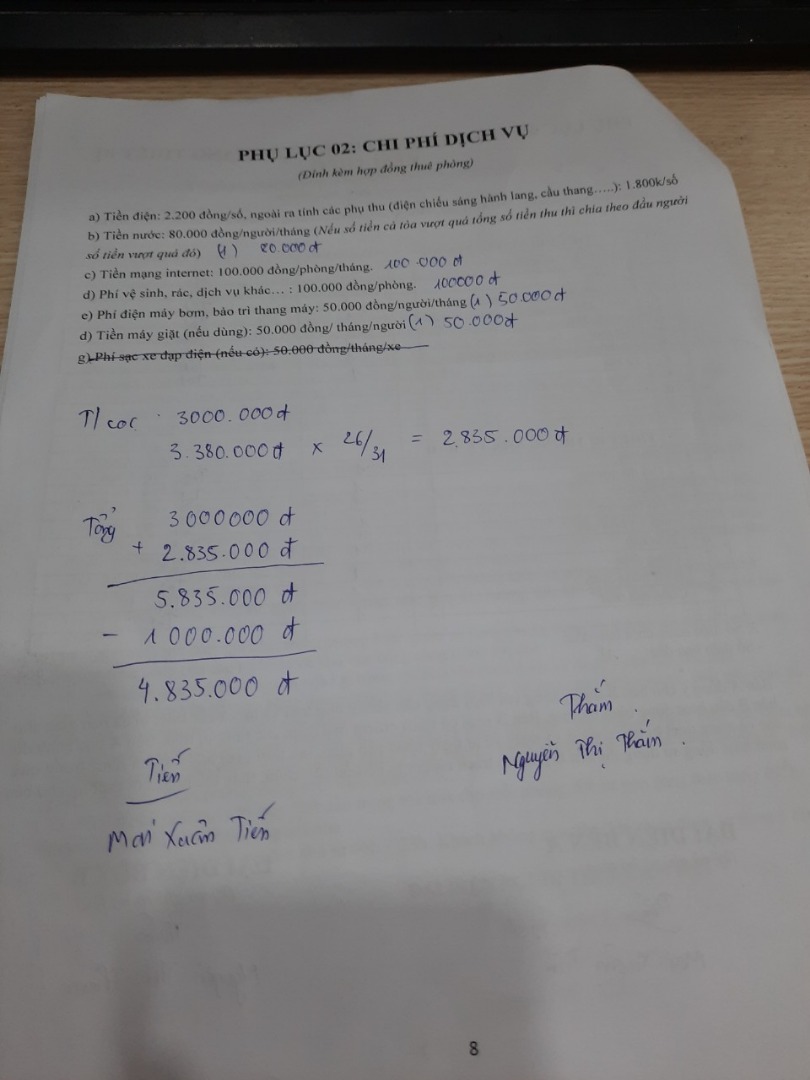 PHỤ LỤC 02: CHI PHÍ DỊCH VỤ
(Đính kèm hợp đồng thuê phòng)
a) Tiền điện: 2.200 đồng/số, ngoài ra tính các phụ thu (điện chiếu sáng hành lang, cầu thang…..): 1.800k/số
b) Tiền nước: 80.000 đồng/người/tháng (Nếu số tiền cả tòa vượt quá tổng số tiền thu thì chia theo đầu người
số tiền vượt quá đó) (1) 80.000đ
c) Tiền mạng internet: 100.000 đồng/phòng/tháng. 100.000 đ
d) Phí vệ sinh, rác, dịch vụ khác… : 100.000 đồng/phòng. 100000 đ
e) Phí điện máy bơm, bảo trì thang máy: 50.000 đồng/người/tháng (1) 50.000đ
d) Tiền máy giặt (nếu dùng): 50.000 đồng/ tháng/người (1) 50.000đ
g) Phí sạc xe đạp điện (nếu có): 50.000 đồng/tháng/xe
T/cọc 3000.000đ
3.380.000đ x 26/31 = 2.835.000đ
Tổng 3000000 đ
+ 2.835.000 đ
5.835.000 đ
- 1000.000 đ
4.835.000 đ
Thắm
Nguyễn Thị Thắm
Tiến
Mai Xuân Tiến
8